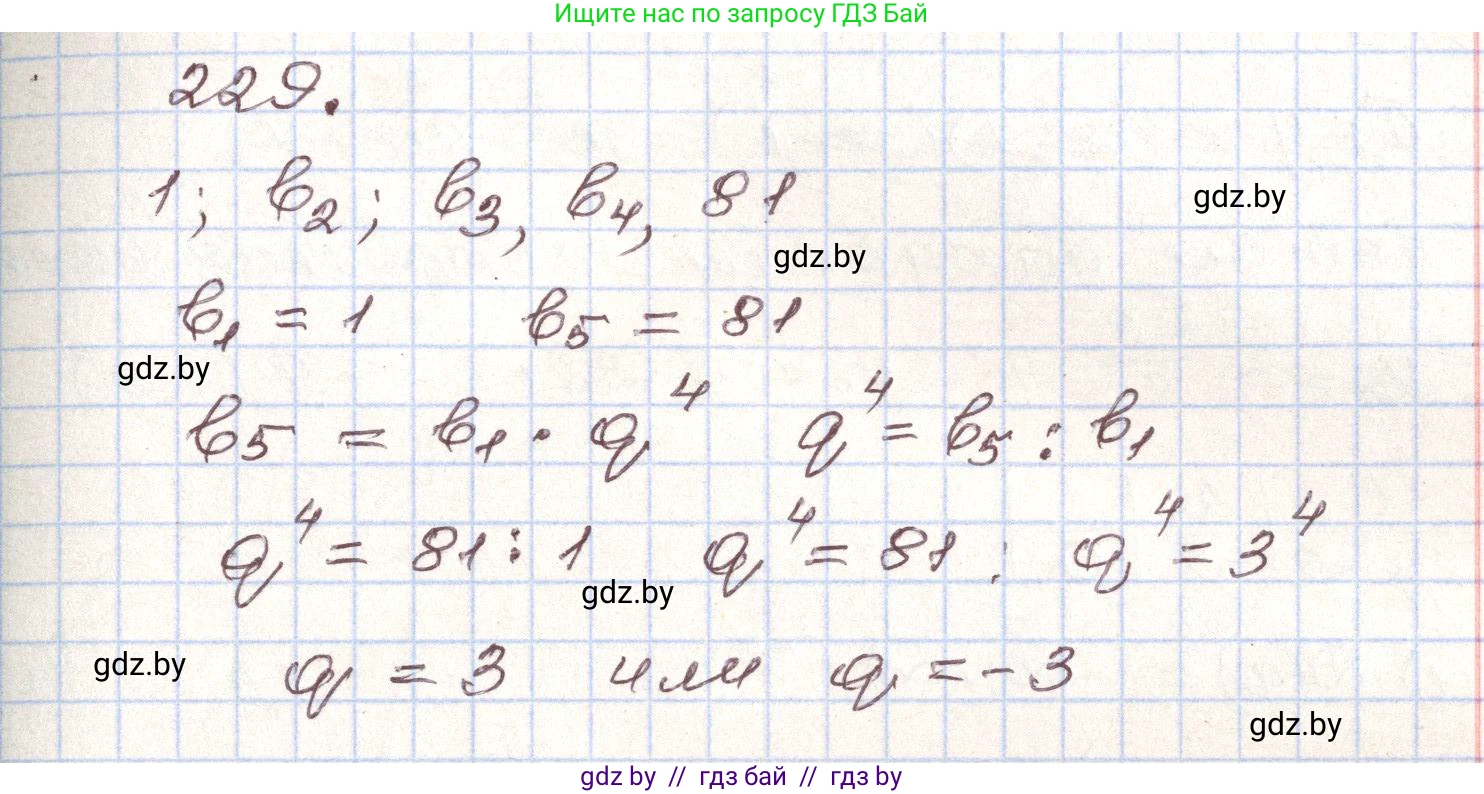 Ищите нас по запросу ГДЗ Бай
229.
1; b₂; b₃, b₄, 81
gdz.by
gdz.by
b₁ = 1 b₅ = 81
gdz.by
b₅ = b₁ · q⁴ q⁴ = b₅ : b₁
q⁴ = 81 : 1 q⁴ = 81; q⁴ = 3⁴
gdz.by
gdz.by
q = 3 или q = -3
gdz.by
gdz by // гдз бай // гдз by